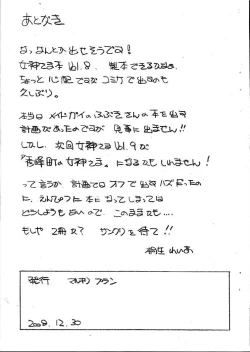 あとがき
なっなんとか出せそうです!
女神さま本 Vol.8、製本できるかなぁ、
ちょっと心配ですが コミケで出すのも
久しぶり。
本当は メイドガイの ふぶきさんの本を出す
計画だったのですが 見事に出ません!!
しかし、次回 女神さま Vol.9 が
"吉峰町の女神さま。になるかもしれません!
って言うか、計画では オフで出すハズだったの
に、えんぴつ本になってしまっては
どうしようもないので、このまま も…
もしや 2冊め? サンクリを待て!!
桐生 れいお
発行 マルチプラン
2008.12.30